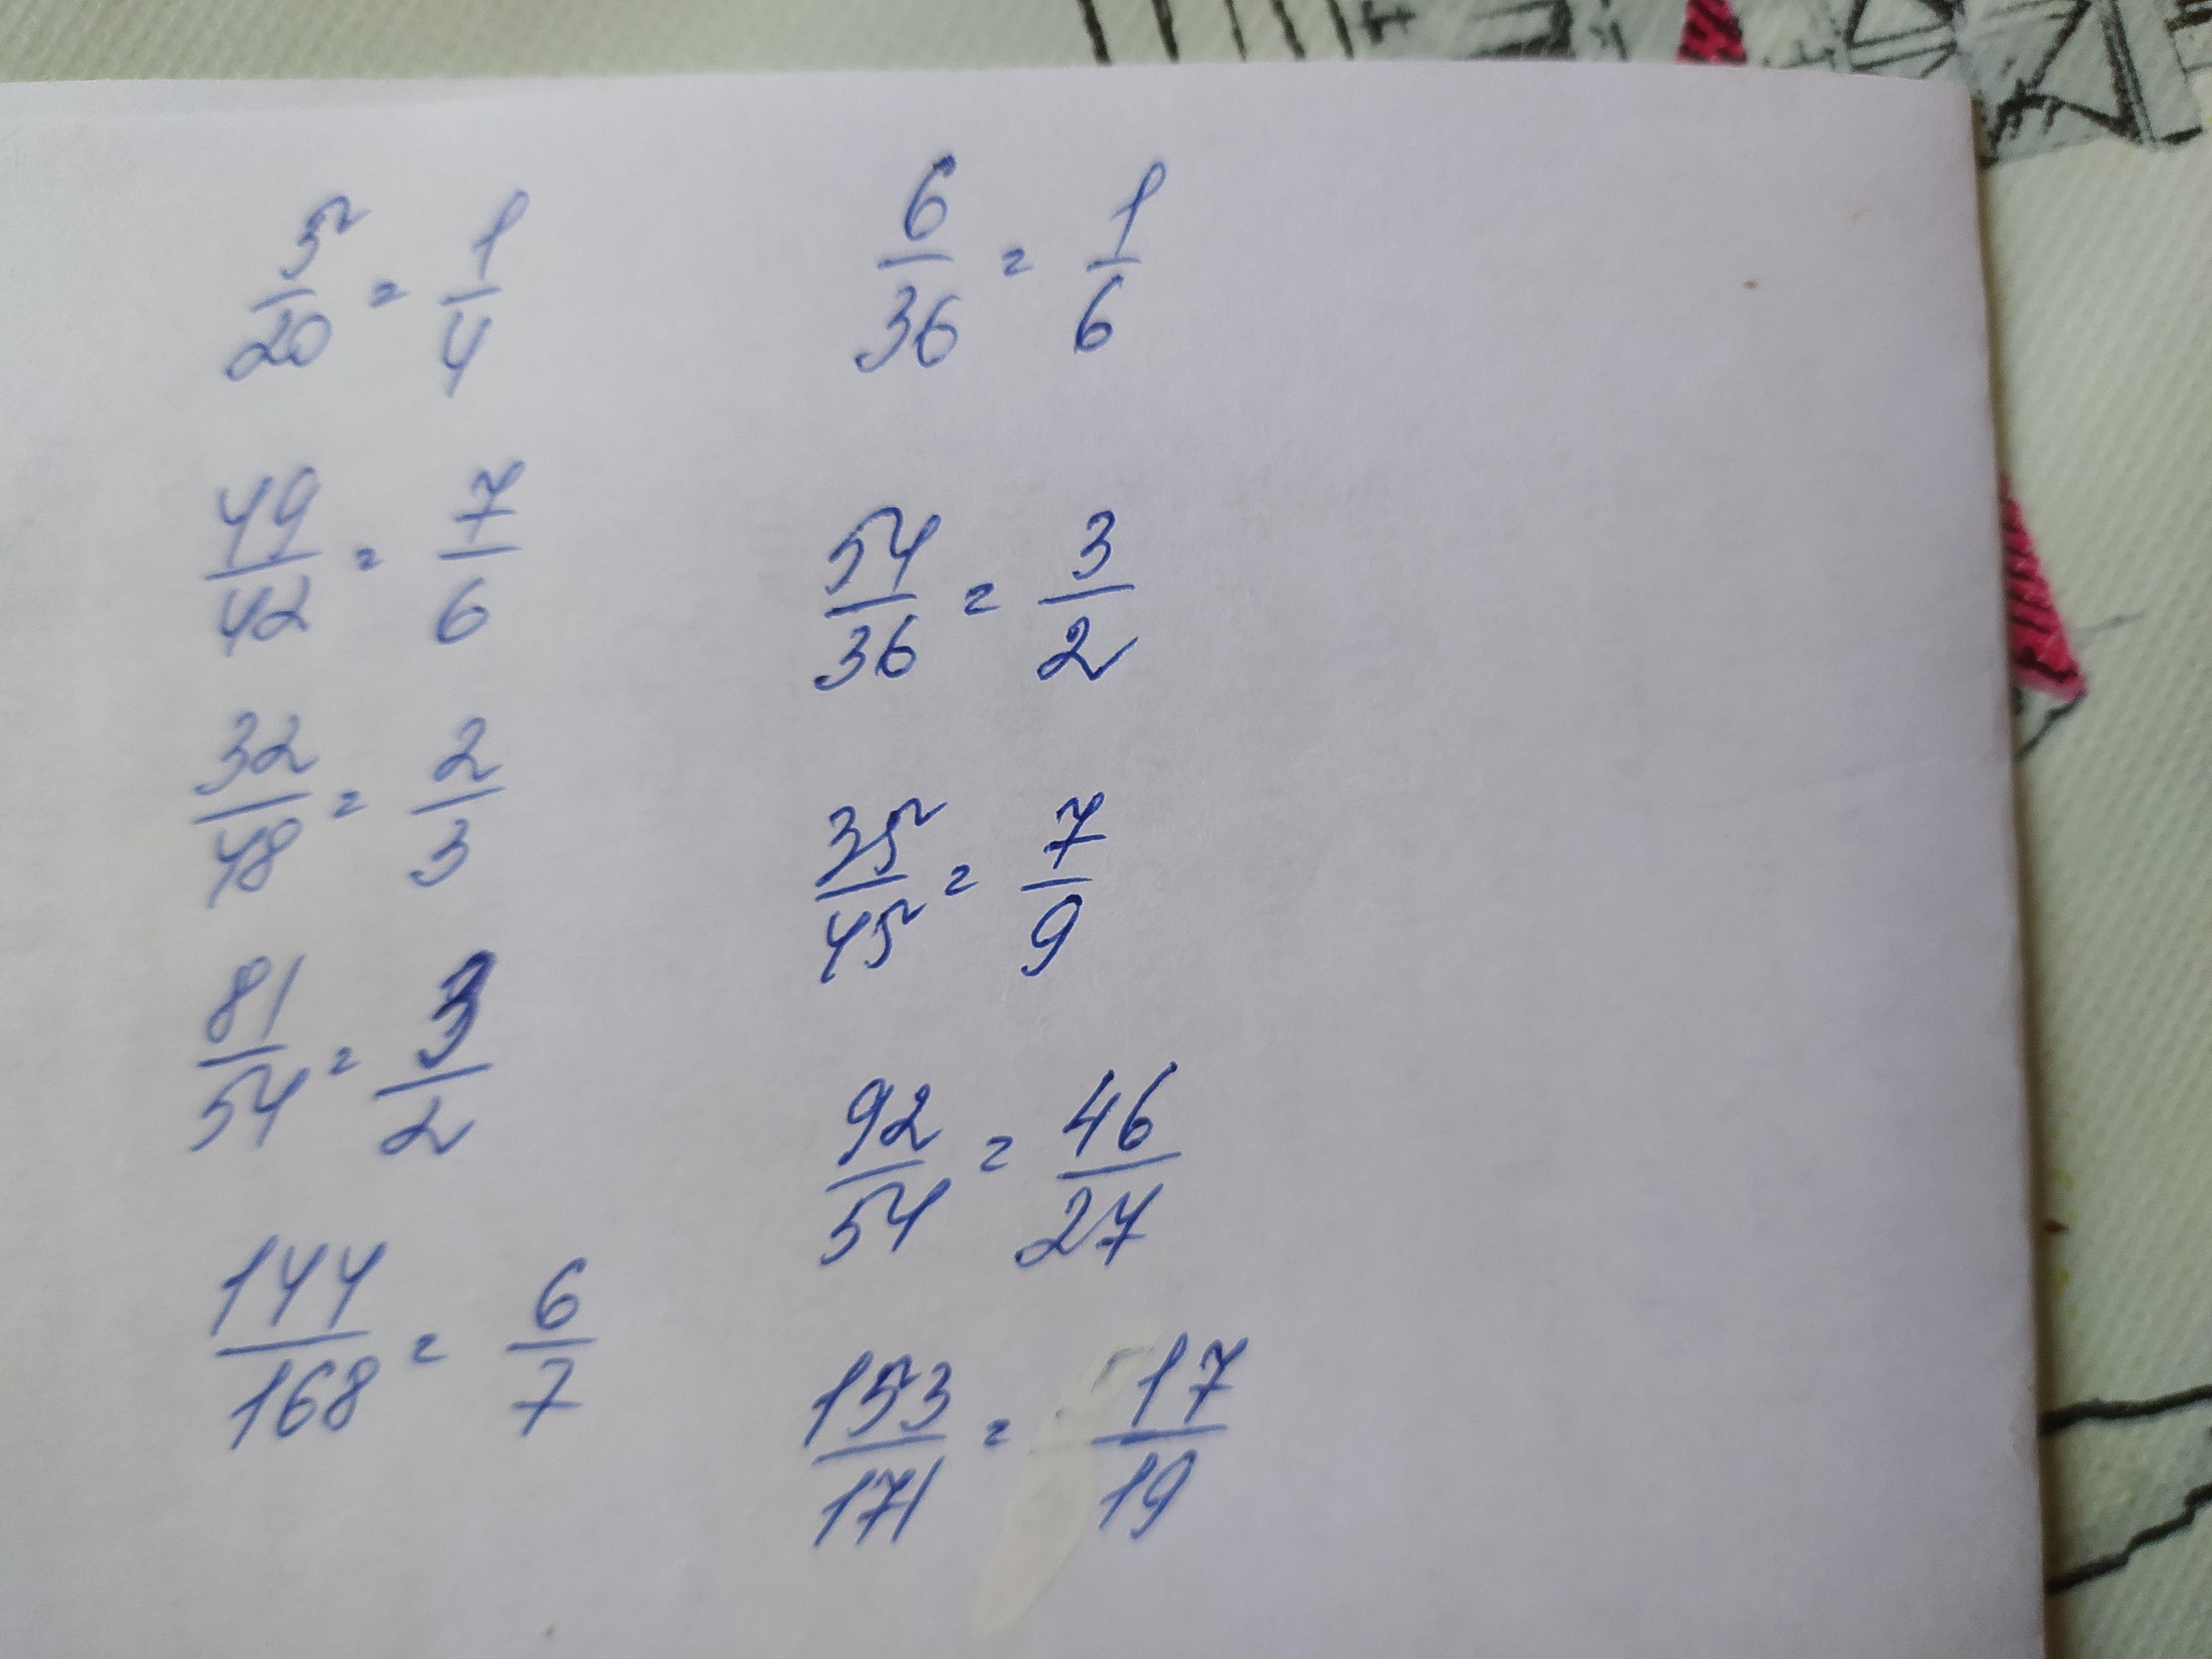 5/20 = 1/4
49/42 = 7/6
32/48 = 2/3
81/54 = 3/2
144/168 = 6/7
6/36 = 1/6
54/36 = 3/2
35/45 = 7/9
92/54 = 46/27
153/171 = 17/19